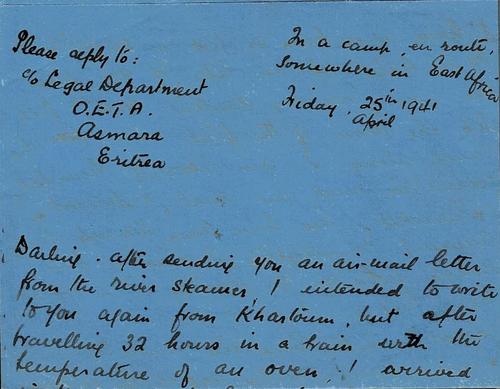 Please reply to:
c/o Legal Department
O.E.T.A.
Asmara
Eritrea
In a camp, en route,
Somewhere in East Africa
Friday, 25th 1941
April
Darling - after sending you an air-mail letter
from the river steamer, I intended to write
to you again from Khartoum, but after
travelling 32 hours in a train with the
temperature of an oven, I arrived